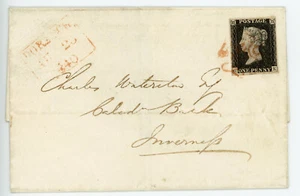 POSTAGE
ONE PENNY
Charles Waterlow Esq
Caled. Bank
Inverness